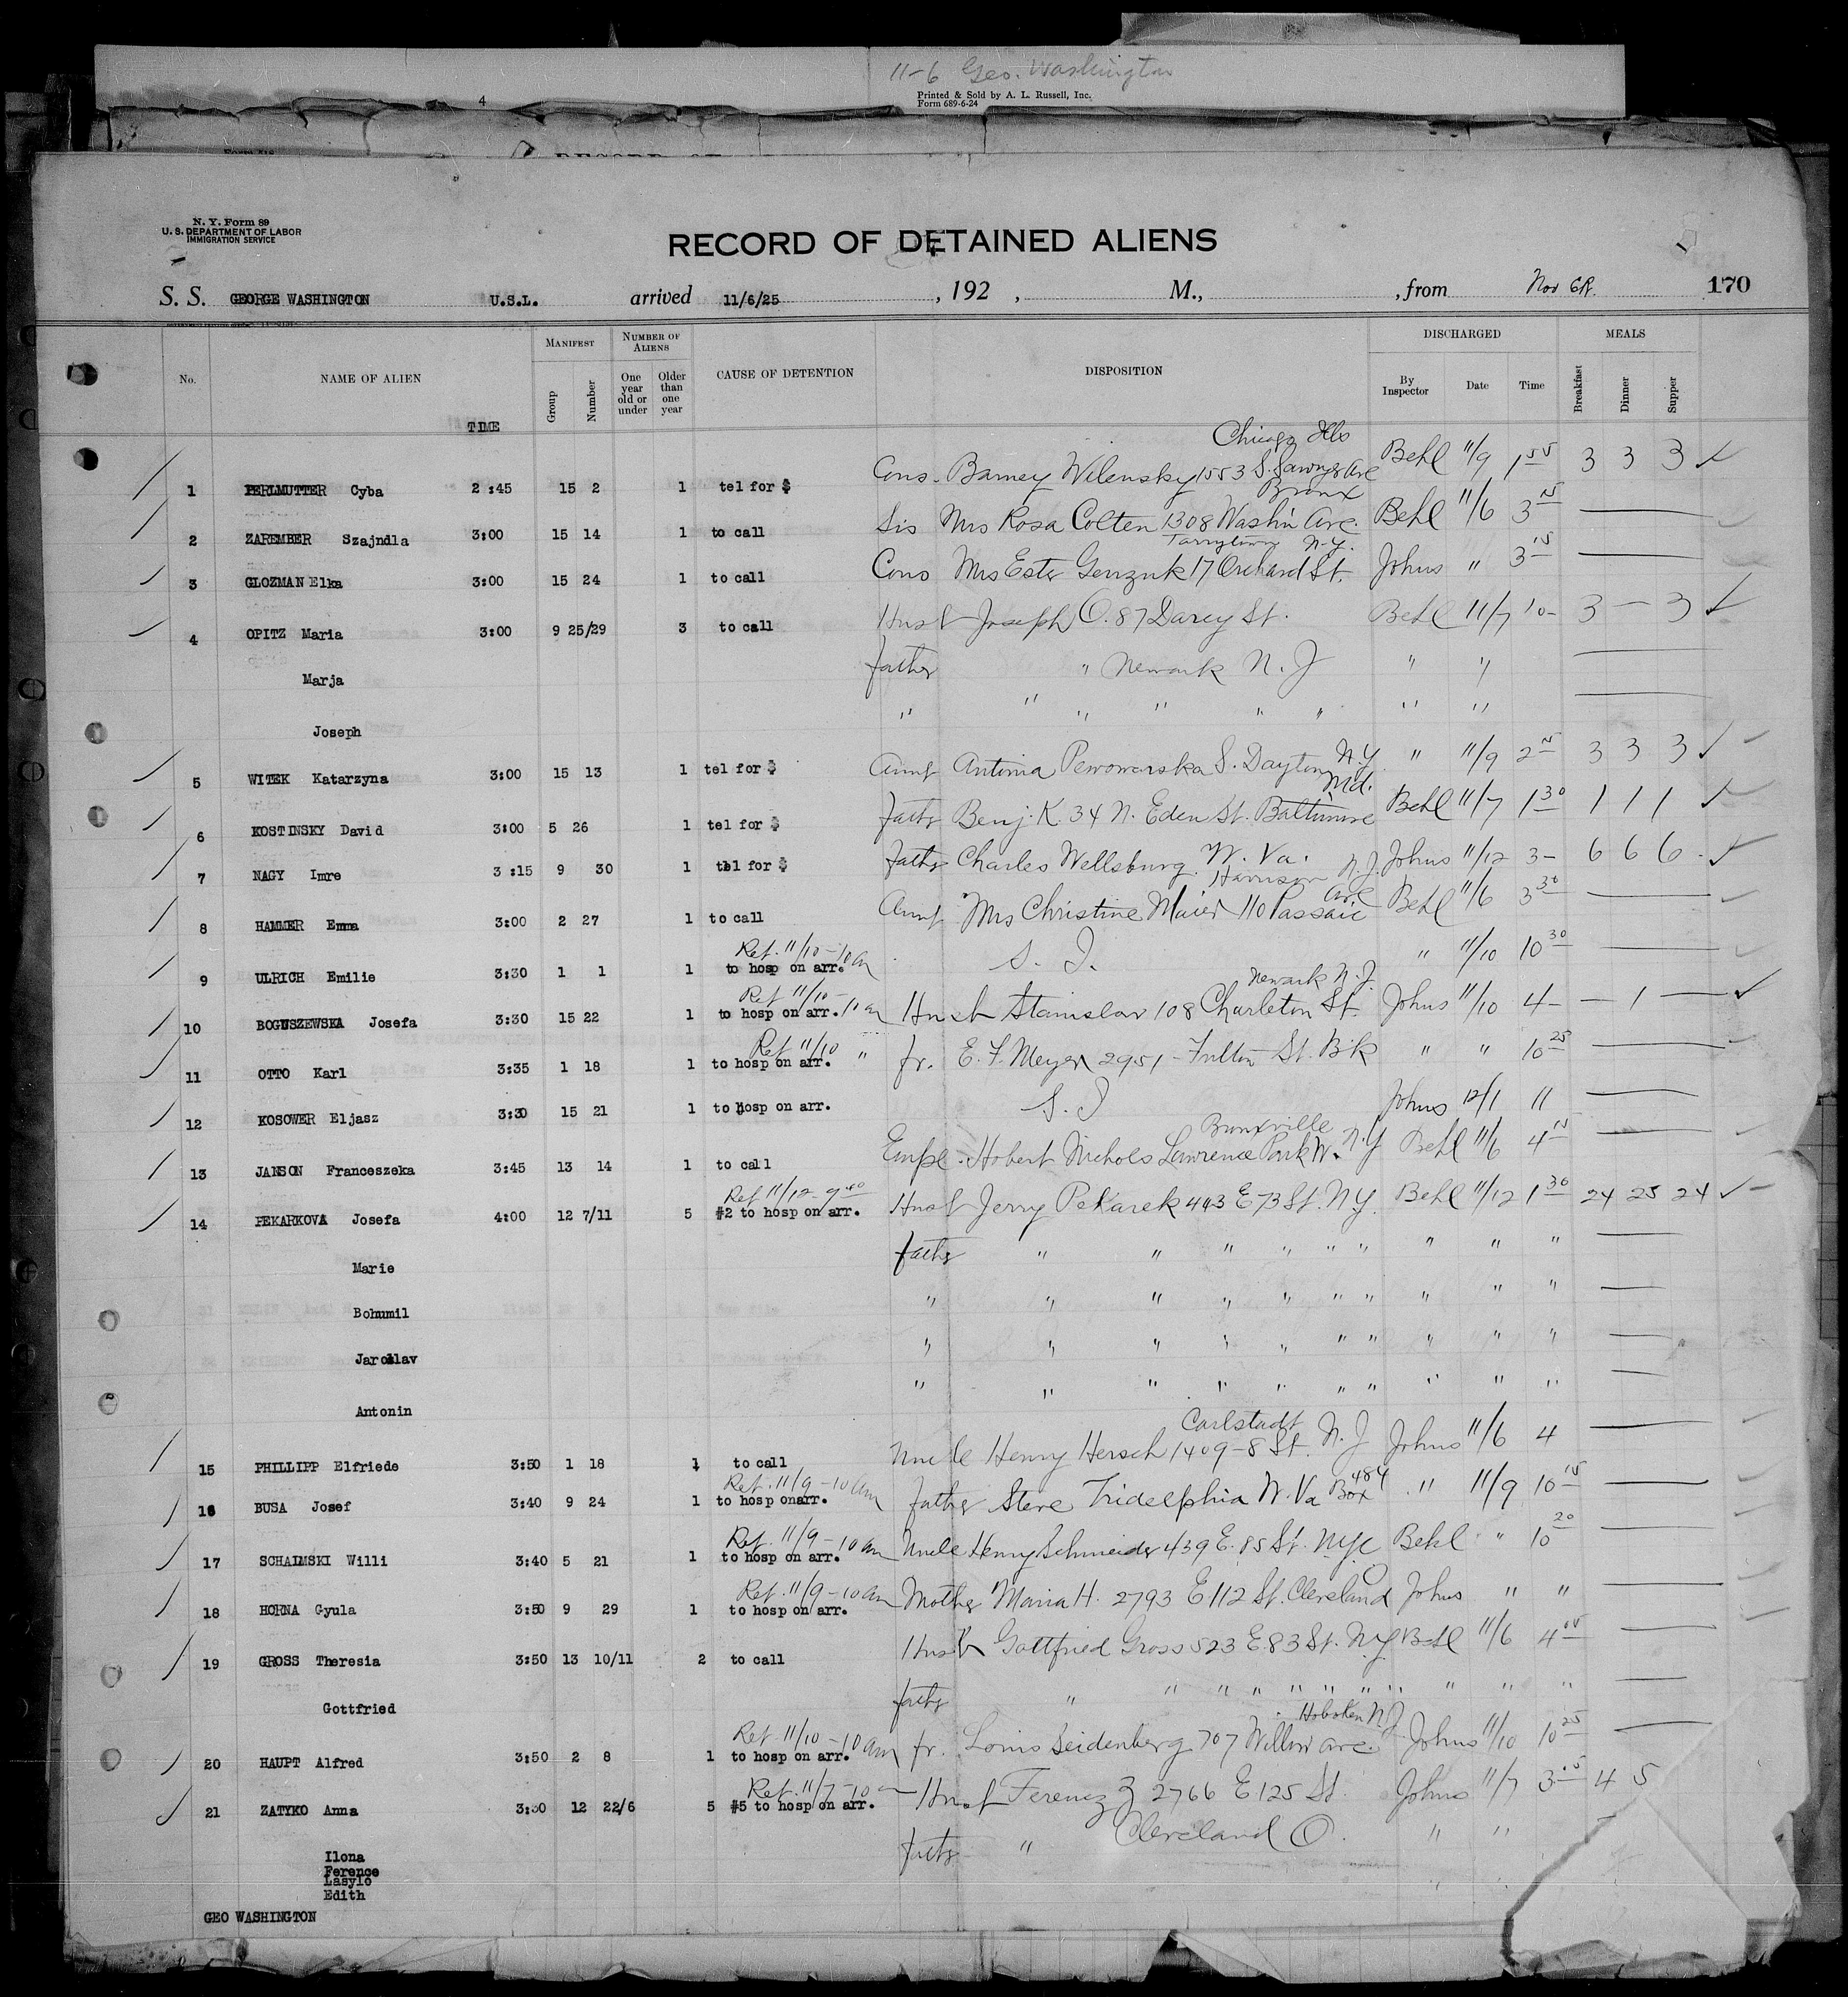 11-6 Geo. Washington
Printed & Sold by A. L. Russell, Inc.
Form 689-6-24
4
N. Y. Form 89
U. S. DEPARTMENT OF LABOR
IMMIGRATION SERVICE
RECORD OF DETAINED ALIENS
S. S. GEORGE WASHINGTON U.S.L. arrived 11/6/25 , 192 , M., , from Nov 6 170
No. NAME OF ALIEN TIME MANIFEST Group Number NUMBER OF ALIENS One year old or under Older than one year CAUSE OF DETENTION DISPOSITION DISCHARGED By Inspector Date Time MEALS Breakfast Dinner Supper
Chicago Ills
1 PERLMUTTER Cyba 2:45 15 2 1 tel for $ Cons. Barney Wilensky 1553 S. Sawyer Ave Behl 11/9 1 55 3 3 3
Bronx
2 ZAREMBER Szajndla 3:00 15 14 1 to call Sis Mrs Rosa Colten 1308 Washn Ave. Behl 11/6 3 15
Tarrytown N.Y.
3 GLOZMAN Elka 3:00 15 24 1 to call Cons Mrs Ester 17 Orchard St. Johns " 3 15
4 OPITZ Maria 3:00 9 25/29 3 to call Husb Joseph O. 87 Darcy St. Behl 11/7 10- 3 — 3
Marja father " Newark N. J " "
Joseph " " " " " " " "
5 WITEK Katarzyna 3:00 15 13 1 tel for $ Aunt Antonia S. Dayton N.Y. " 11/9 2 15 3 3 3
Md.
6 KOSTINSKY David 3:00 5 26 1 tel for $ Fathr Benj. K. 34 N. Eden St. Baltimore Behl 11/7 1 30 1 1 1
7 NAGY Imre 3:15 9 30 1 tel for $ Fathr Charles Wellsburg. W. Va. Johns 11/12 3- 6 6 6
Harrison N.J.
8 HAMMER Emma 3:00 2 27 1 to call Aunt Mrs Christine Maier 110 Passaic Ave Behl 11/6 3 30
Ret. 11/10-10 am
9 ULRICH Emilie 3:30 1 1 1 to hosp on arr. S. I. " 11/10 10 30
Ret 11/10- 10 am Newark N.J.
10 BOGUSZEWSKA Josefa 3:30 15 22 1 to hosp on arr. Husb Stanislav 108 Charleton St. Johns 11/10 4- — 1 —
Ret 11/10 "
11 OTTO Karl 3:35 1 18 1 to hosp on arr. fr. E. F. Meyer 2951-Fulton St. B'k " " 10 25
12 KOSOWER Eljasz 3:30 15 21 1 to hosp on arr. S. I Johns 12/1 11
Bronxville
13 JANSON Franceszeka 3:45 13 14 1 to call Empl. Hobert Nichols Lawrence Park W. N.Y Behl 11/6 4 15
Ret 11/12-9 40
14 PEKARKOVA Josefa 4:00 12 7/11 5 #2 to hosp on arr. Husb Jerry Pekarek 443 E 73 St. N.Y. Behl 11/12 1 30 24 25 24
Marie fathr " " " " " " " " "
Bohumil " " " " " " " " " "
Jaroslav " " " " " " " " " "
Antonin " " " " " " " " " "
Carlstadt
15 PHILLIPP Elfriede 3:50 1 18 1 to call Uncle Henry Hersch 1409-8 St. N. J Johns 11/6 4
Ret. 11/9-10 am
16 BUSA Josef 3:40 9 24 1 to hosp onarr. Fathr Steve Tridelphia W. Va Box 484 " 11/9 10 15
Ret. 11/9-10 am
17 SCHAIMSKI Willi 3:40 5 21 1 to hosp on arr. Uncle Henry Schneider 439 E. 85 St. NYC Behl " 10 20
Ret. 11/9-10 am
18 HORNA Gyula 3:50 9 29 1 to hosp on arr. Mother Maria H. 2793 E 112 St. Cleveland Johns " "
19 GROSS Theresia 3:50 13 10/11 2 to call Husb Gottfried Gross 523 E. 83 St. N.Y Behl 11/6 4 05
Gottfried fathr " " " " " " " " " " "
Ret 11/10-10 am Hoboken N J
20 HAUPT Alfred 3:50 2 8 1 to hosp on arr. fr. Louis Seidenberg 707 Willow Ave. Johns 11/10 10 25
Ret. 11/7-10
21 ZATYKO Anna 3:30 12 22/6 5 #5 to hosp on arr. Husb Ferencz Z 2766 E 125 St. Johns 11/7 3 4 5
fathr " Cleveland O. " "
Ilona
Ference
Lasylo
Edith
GEO WASHINGTON